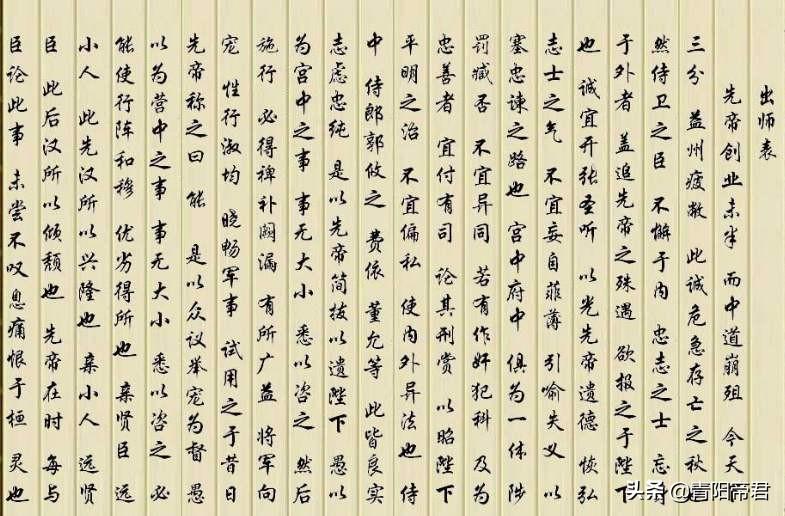 出师表
先帝创业未半 而中道崩殂 今天下
三分 益州疲敝 此诚危急存亡之秋也
然侍卫之臣 不懈于内 忠志之士 忘身
于外者 盖追先帝之殊遇 欲报之于陛下
也 诚宜开张圣听 以光先帝遗德 恢弘
志士之气 不宜妄自菲薄 引喻失义 以
塞忠谏之路也 宫中府中 俱为一体 陟
罚臧否 不宜异同 若有作奸犯科 及为
忠善者 宜付有司 论其刑赏 以昭陛下
平明之治 不宜偏私 使内外异法也 侍
中 侍郎郭攸之 费依 董允等 此皆良实
志虑忠纯 是以先帝简拔以遗陛下 愚以
为宫中之事 事无大小 悉以咨之 然后
施行 必得裨补阙漏 有所广益 将军向
宠 性行淑均 晓畅军事 试用之于昔日
先帝称之曰 能 是以众议举宠为督 愚
以为营中之事 事无大小 悉以咨之 必
能使行阵和穆 优劣得所也 亲贤臣 远
小人 此先汉所以兴隆也 亲小人 远贤
臣 此后汉所以倾颓也 先帝在时 每与
臣论此事 未尝不叹息痛恨于桓灵也
头条 @青阳帝君